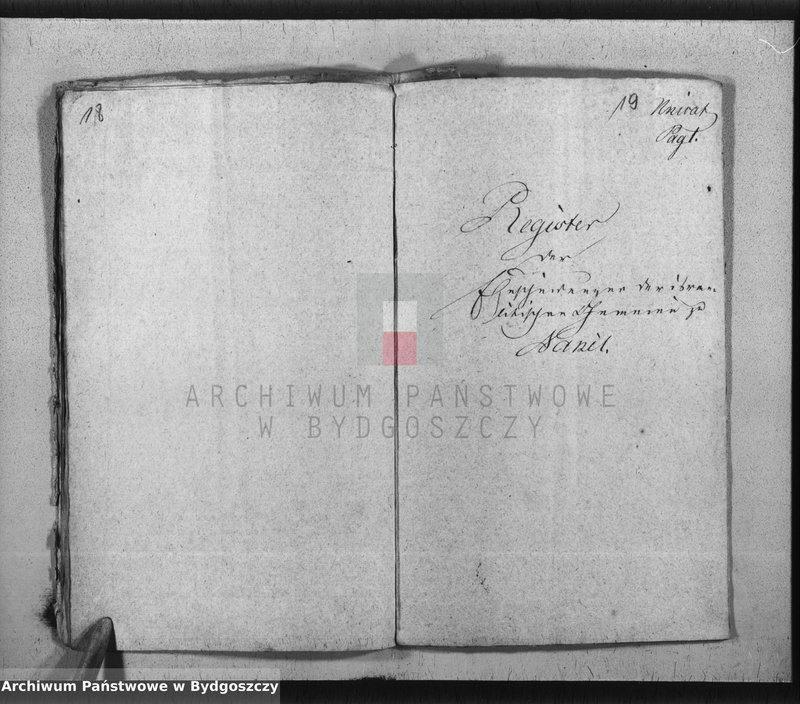 18
19
Pagt.
Register
der
Ehescheidungen der israe-
litischen Gemeine zu
Nakel.
ARCHIWUM PAŃSTWOWE
W BYDGOSZCZY
Archiwum Państwowe w Bydgoszczy